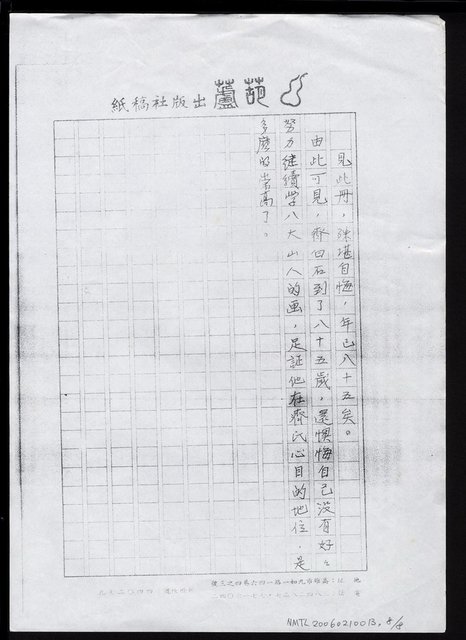 葫蘆出版社稿紙
見此冊,殊堪自悔,年已八十五矣。
由此可見,齊白石到了八十五歲,還懊悔自己沒有好好
努力繼續學八大山人的画,足証他在齊氏心目的地位,是
多麼的崇高了。
NMTL 20060210013, 8/8